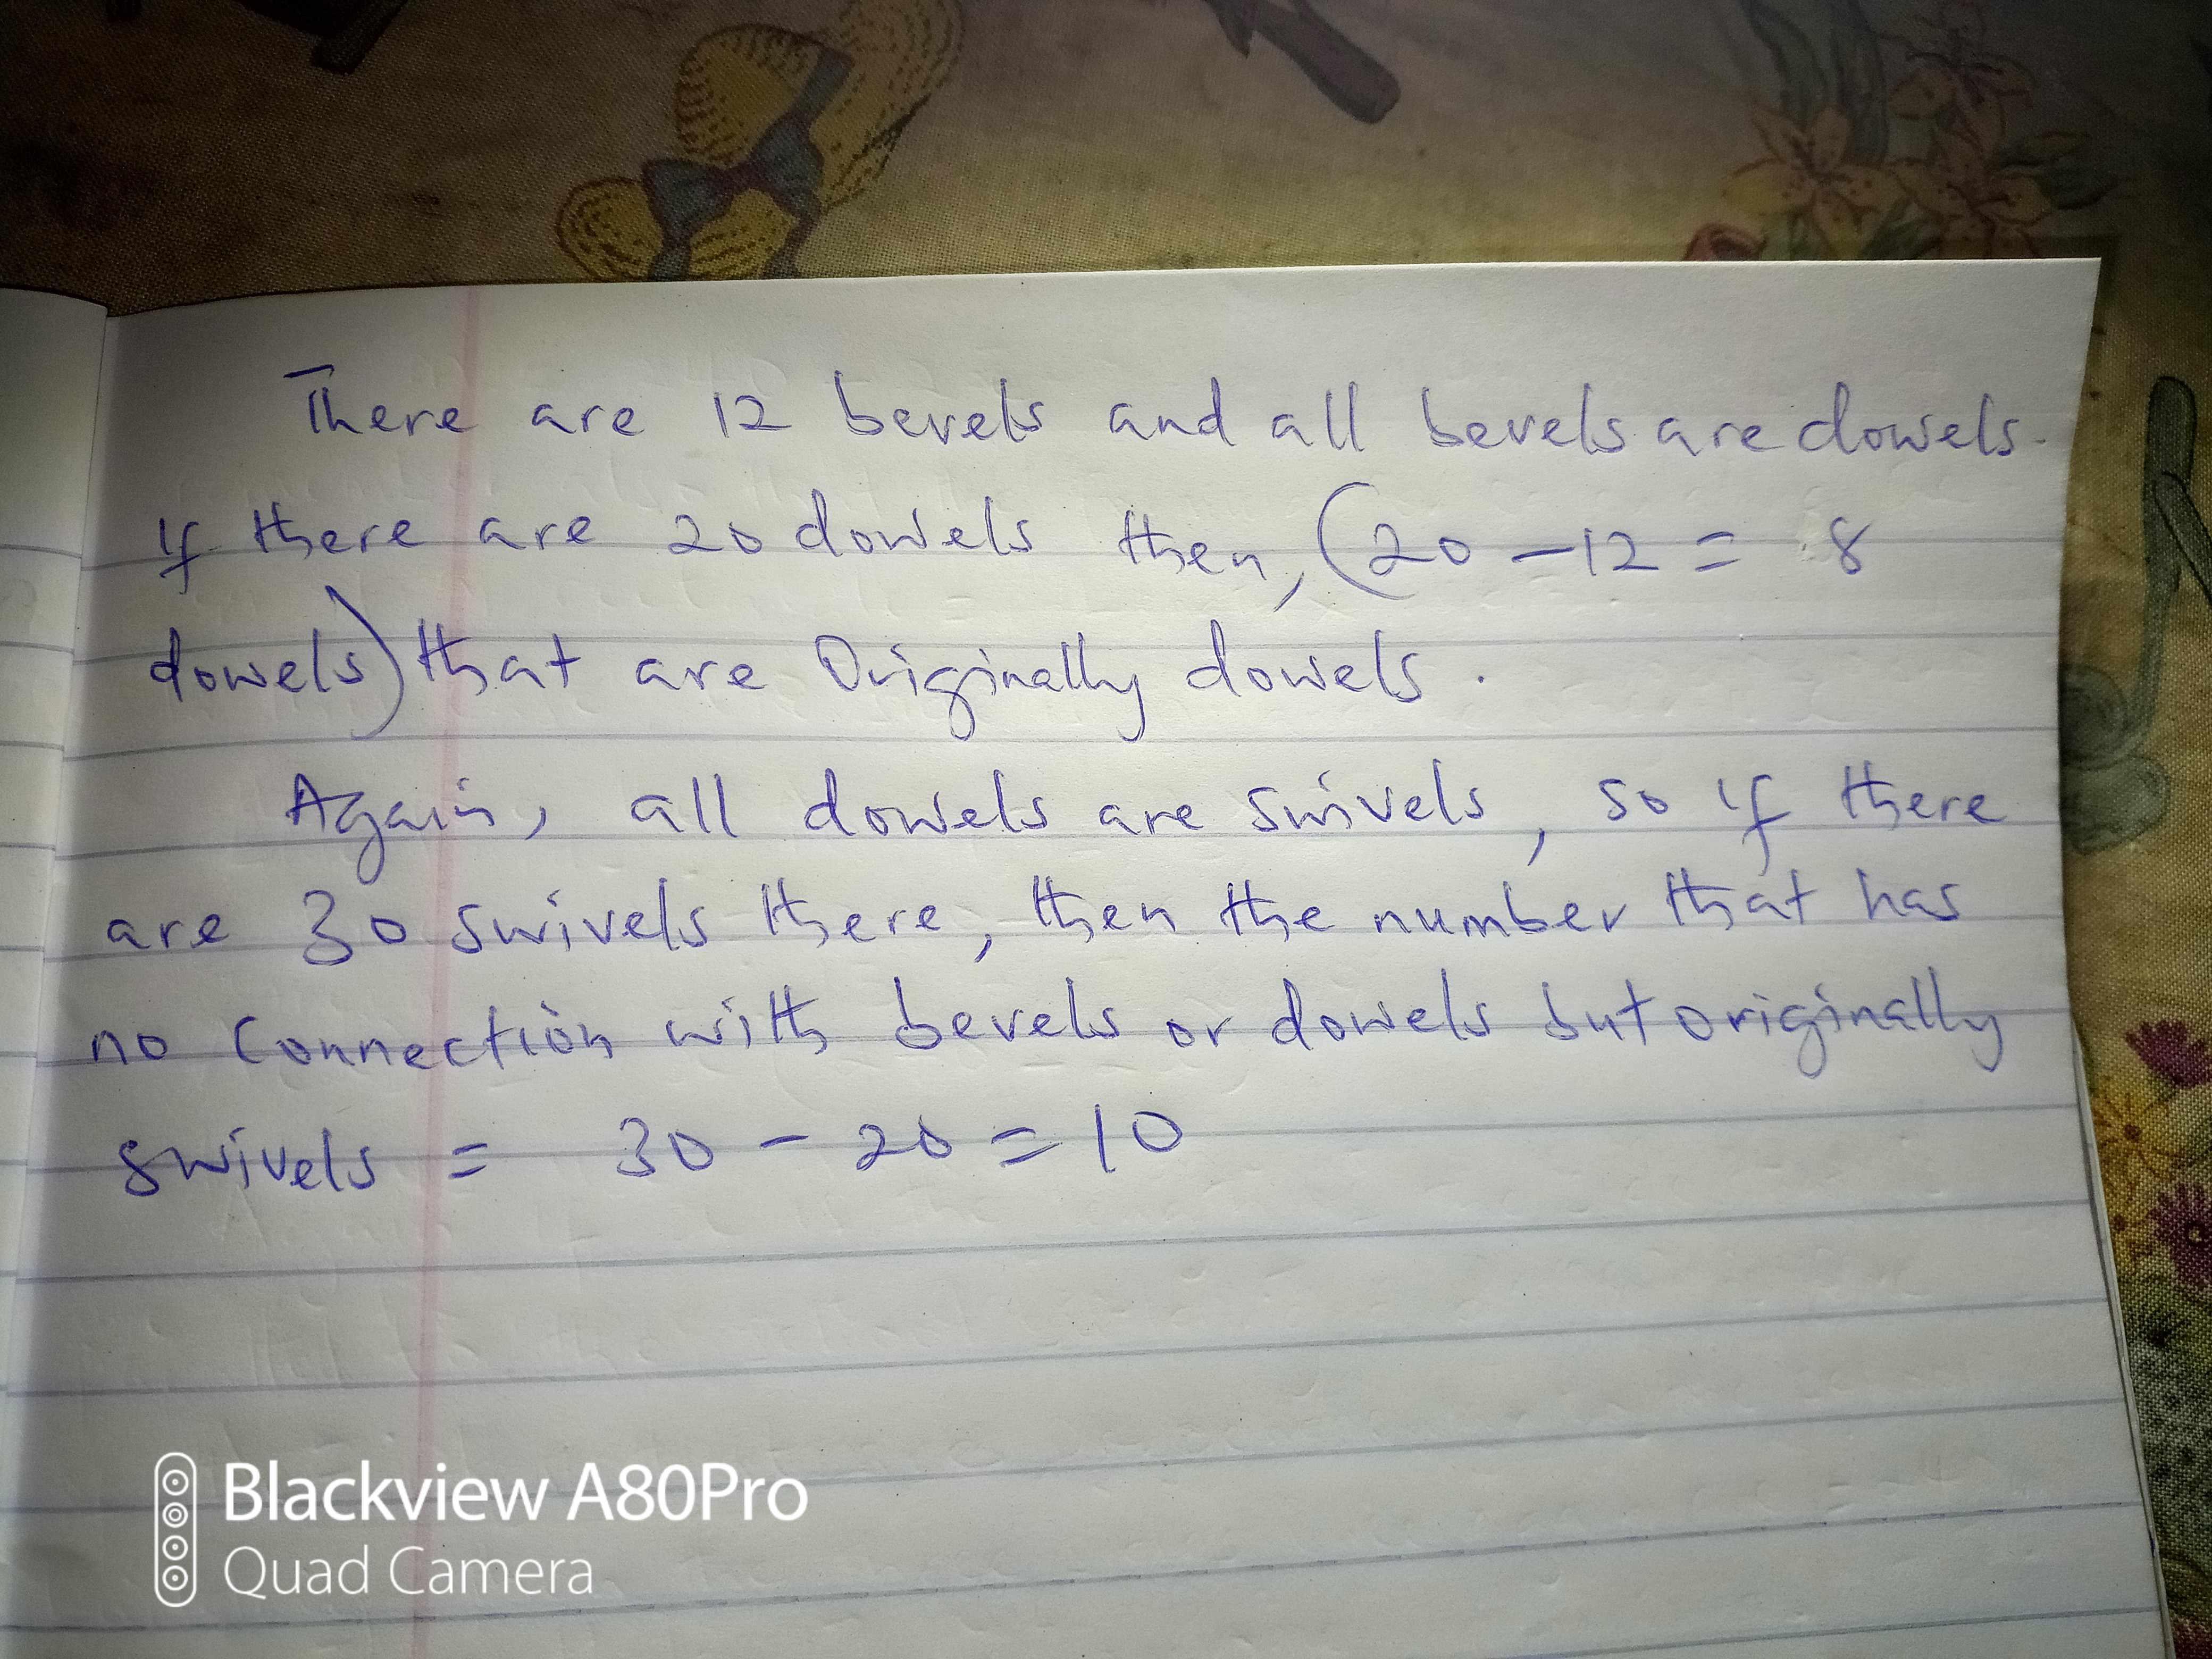 There are 12 bevels and all bevels are dowels.
If there are 20 dowels then, (20 - 12 = 8
dowels) that are Originally dowels.
Again, all dowels are swivels, so if there
are 30 swivels there, then the number that has
no connection with bevels or dowels but originally
swivels = 30 - 20 = 10
Blackview A80Pro
Quad Camera